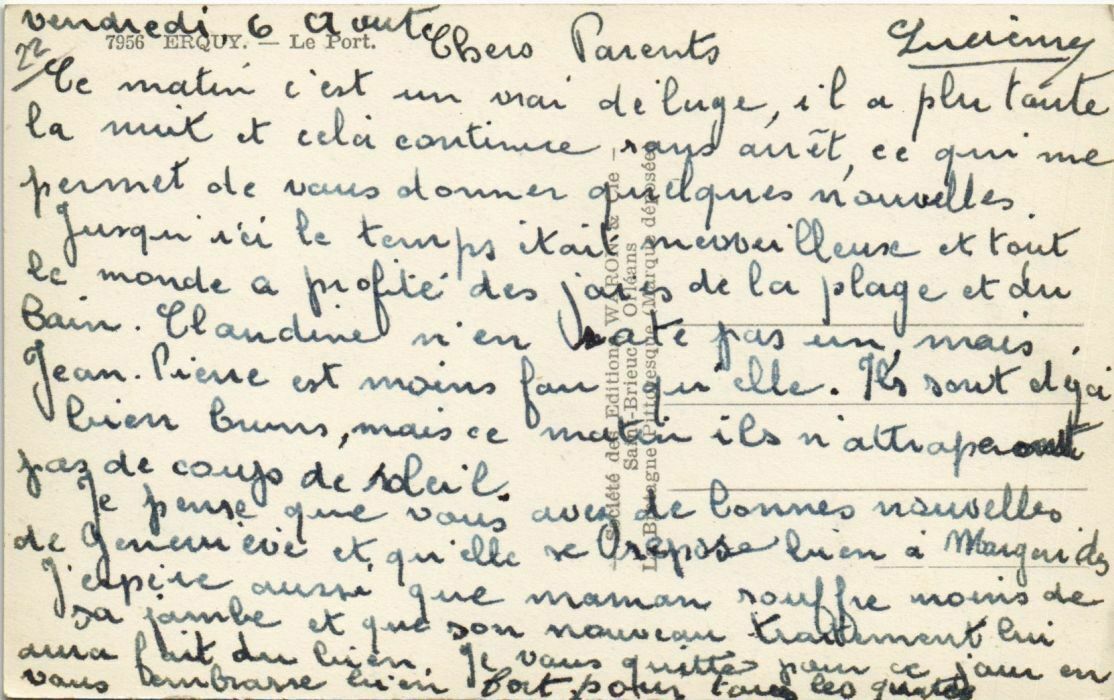 vendredi, 6 Aoute
7956 ERQUY. — Le Port.
Chers Parents
Lucienne
Ce matin c'est un vrai deluge, il a plu toute
la nuit et cela continue sans arrêt, ce qui me
permet de vous donner quelques nouvelles.
Jusqu'ici le temps était merveilleuse et tout
le monde a profité des joies de la plage et du
Bain. Claudine n'en rate pas un, mais
Jean-Pierre est moins fou qu'elle. Ils sont deja
bien bruns, mais ce matin ils n'attraperont
pas de coups de soleil.
Je pense que vous avez de bonnes nouvelles
de Geneviève et qu'elle se repose bien à
J'espère aussi que maman souffre moins de
sa jambe et que son nouveau traitement lui
aura fait du bien. Je vous quitte pour ce jour en
vous embrasse bien fort pour tous les quatre
— Société des Editions WARON & Cie —
Saint-Brieuc Orléans
La Bretagne Pittoresque (Marque déposée)